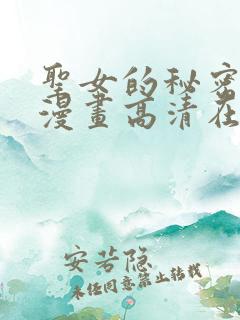 聖女的秘密
漫畫高清在
安若隐
未经同意禁止转载